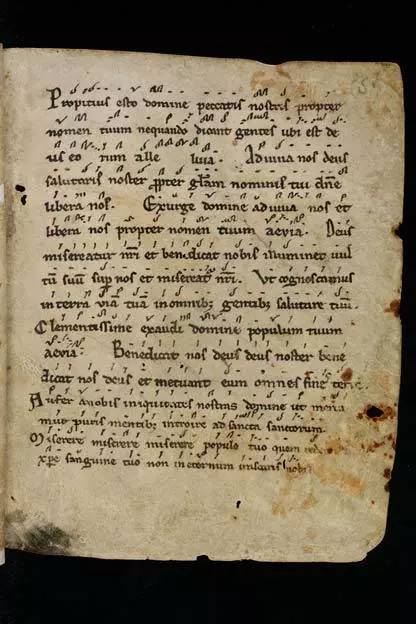 Propitius esto domine peccatis nostris propter
nomen tuum nequando dicant gentes ubi est de
us eo rum alle luia. Adiuua nos deus
salutaris noster ppter głam nominis tui dñe
libera nos. Exurge domine adiuua nos et
libera nos propter nomen tuum aevia. Deus
misereatur nri et benedicat nobis illuminet uul
tū suū sup nos et misereat nri. Ut cognoscamus
in terra viā tuā in omnibz gentibz salutare tuū.
Clementissime exaudi domine populum tuum
aevia. Benedicat nos deus deus noster bene
dicat nos deus et metuant eum omnes fines terre.
Aufer a nobis iniquitates nostras domine ut
puris mentibz introire ad sancta sanctorum.
Miserere miserere miserere populo tuo quem
xpe sanguine tuo non in eternum